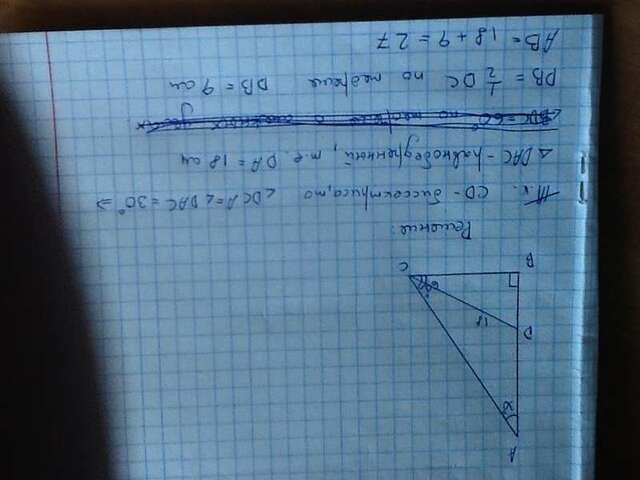 A
D
B
C
18
Решение:
т.к. CD - биссектриса, то ∠DCA = ∠DAC = 30° ⇒
△ DAC - равнобедренный, т.е. DA = 18 см
DB = 1/2 DC по теореме DB = 9 см
AB = 18 + 9 = 27